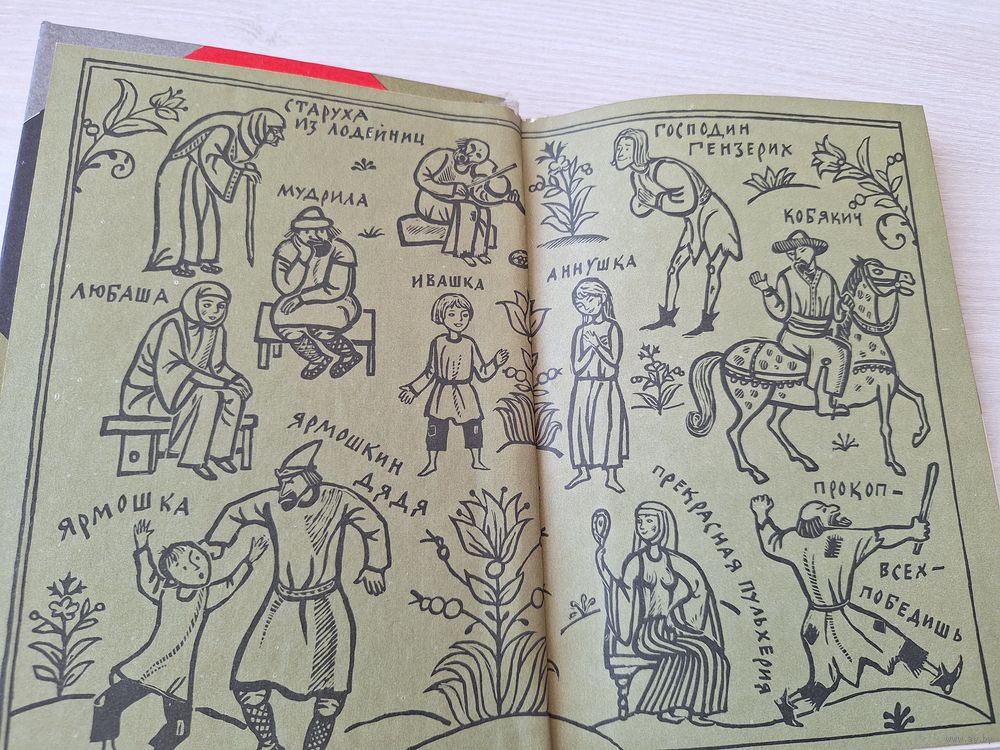 СТАРУХА
ИЗ ЛОДЕЙНИЦ
МУДРИЛА
ЛЮБАША
ИВАШКА
ЯРМОШКИН
ДЯДЯ
ЯРМОШКА
ГОСПОДИН
ГЕНЗЕРИХ
КОБЯКИЧ
АННУШКА
ПРЕКРАСНАЯ ПУЛЬХЕРИЯ
ПРОКОП-
ВСЕХ-
ПОБЕДИШЬ